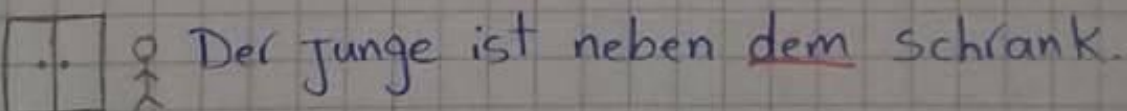 Der Junge ist neben dem schrank.